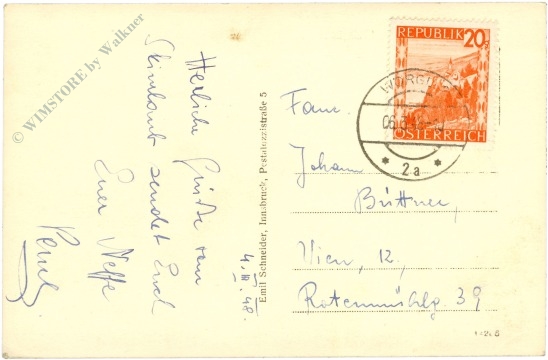 © WIMSTORE by Walkner
Herzliche Grüße vom
Skiurlaub sendet Euch
Euer Neffe
4. III. 48.
Emil Schneider, Innsbruck, Pestalozzistraße 5
REPUBLIK 20g
ÖSTERREICH
WÖRGL
2a
Fam.
Johann
Büttner,
Wien, 12.
Rotenmühlg. 39